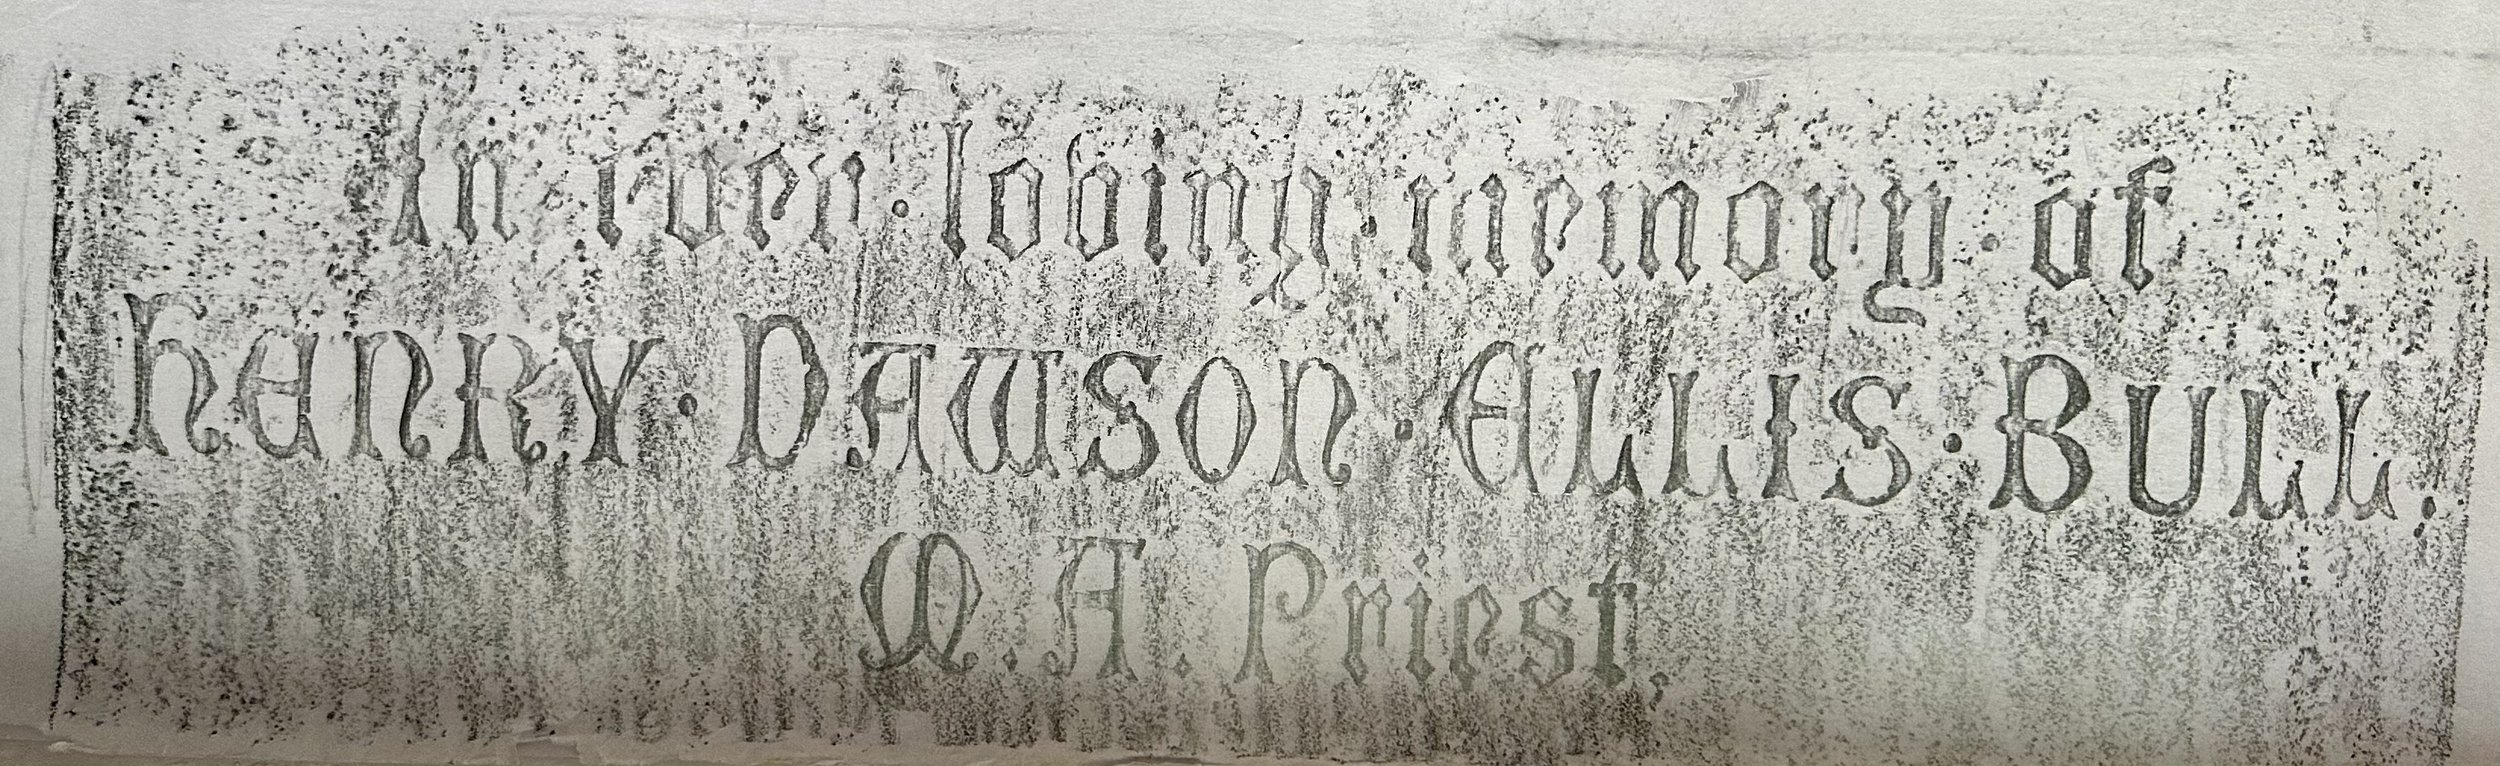 In ever · loving · memory · of
HENRY · DAWSON · ELLIS · BULL,
M.A. Priest,